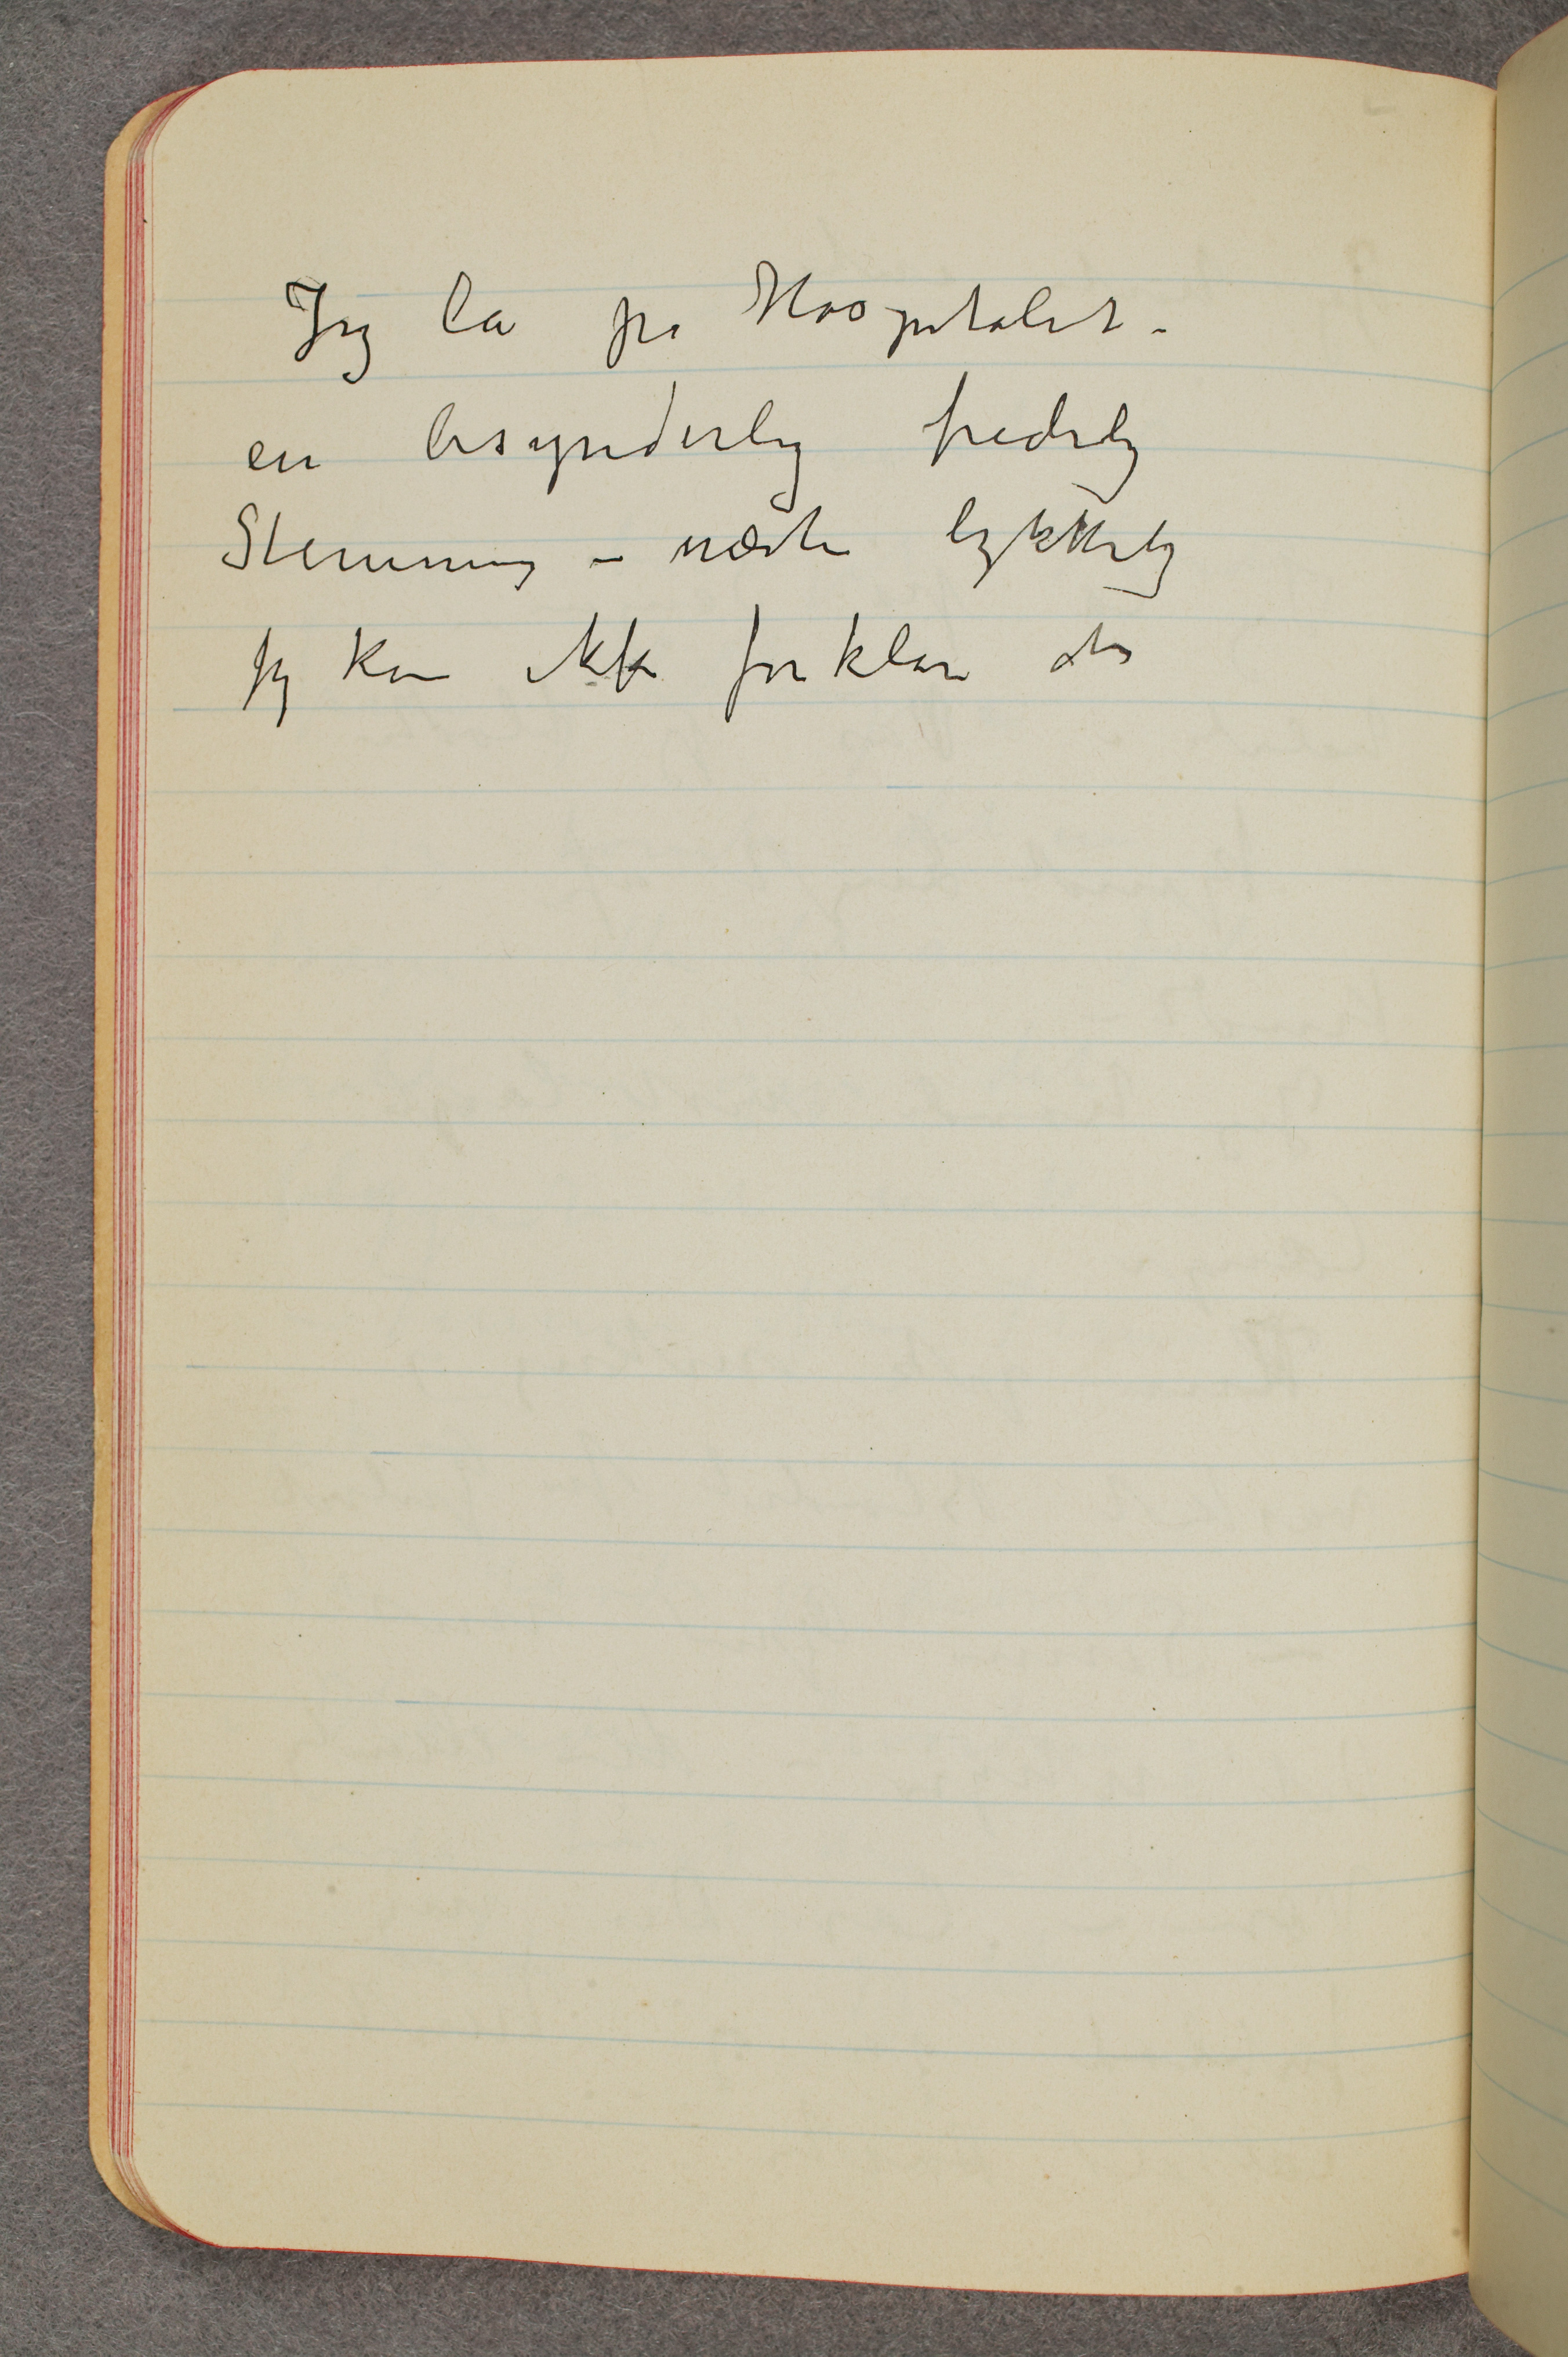 Jeg la på Hospitalet –
en besynderlig fredelig
Stemning – næsten lykkelig
Jeg kan ikke forklare det